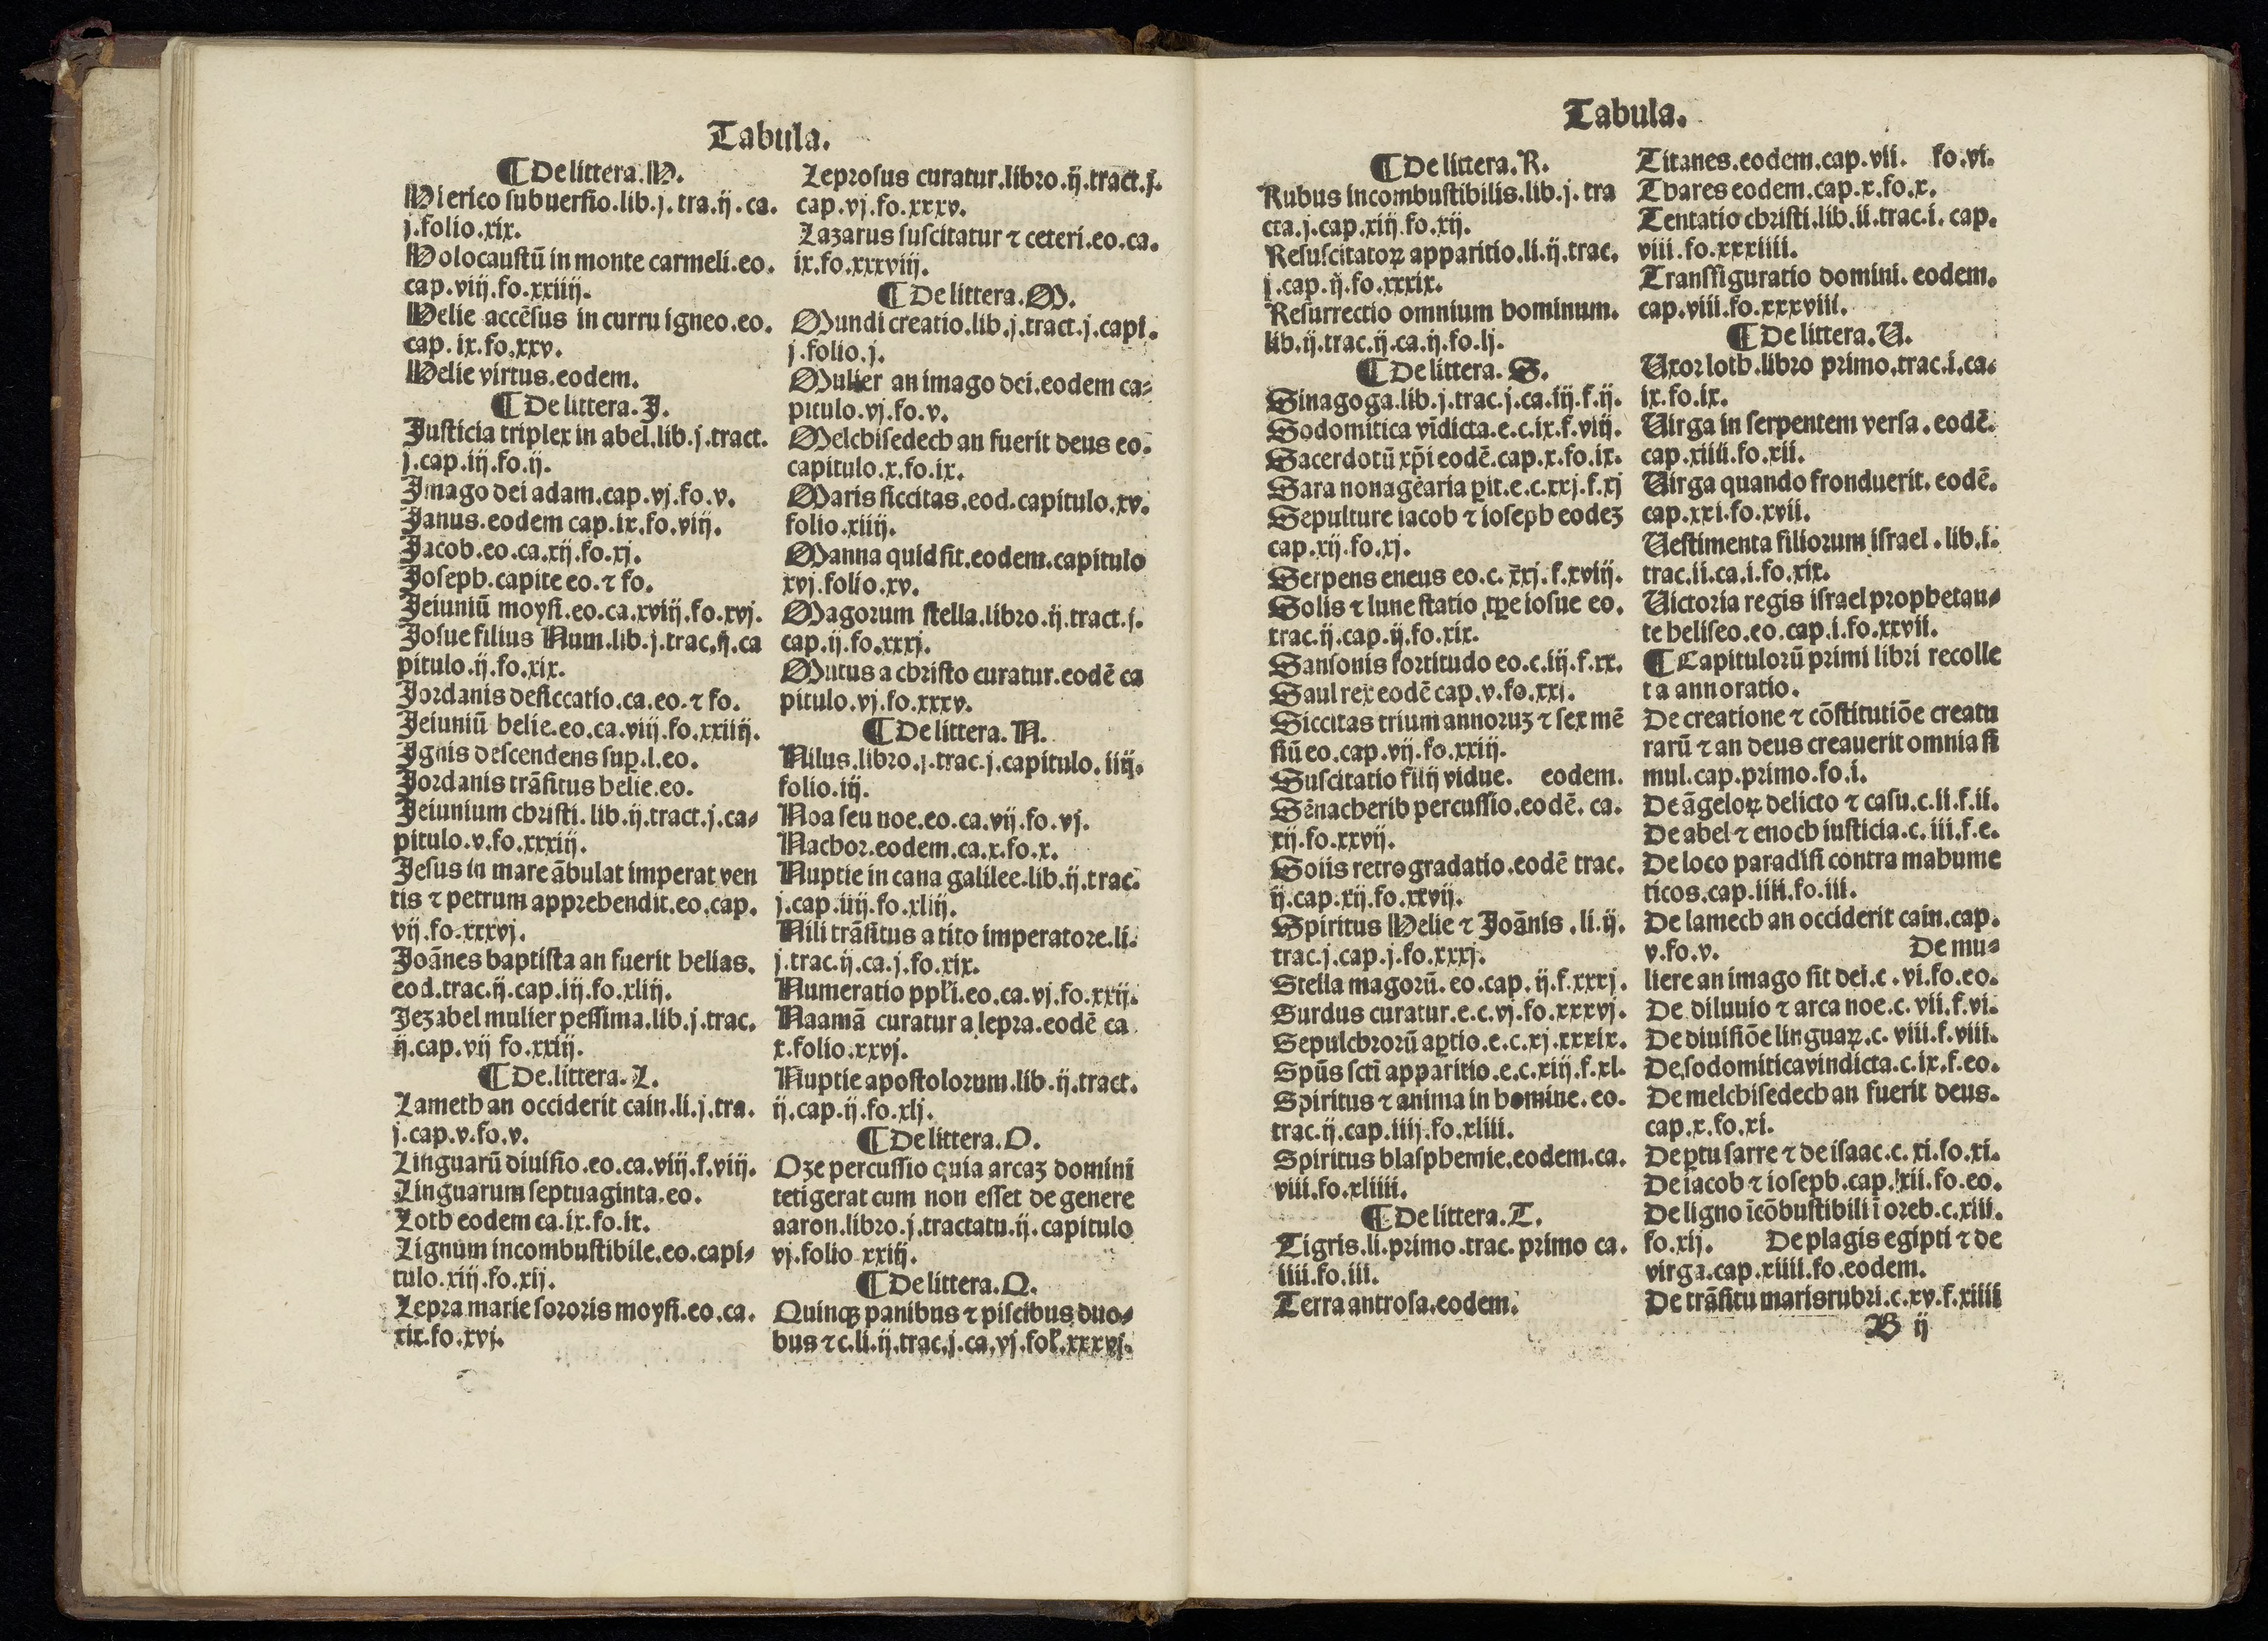 Tabula.
¶ De littera. H.
Hierico subuersio.lib.j.tra.ij.ca.
j.folio.xix.
Holocaustū in monte carmeli.eo.
cap.viij.fo.xxiiij.
Helie accēsus in curru igneo.eo.
cap.ix.fo.xxv.
Helie virtus.eodem.
¶ De littera. J.
Justicia triplex in abel.lib.j.tract.
j.cap.iij.fo.ij.
Jmago dei adam.cap.vj.fo.v.
Janus.eodem cap.ix.fo.viij.
Jacob.eo.ca.xij.fo.xj.
Joseph.capite eo.⁊ fo.
Jeiuniū moysi.eo.ca.xviij.fo.xvj.
Josue filius Num.lib.j.trac.ij.ca
pitulo.ij.fo.xix.
Jordanis desiccatio.ca.eo.⁊ fo.
Jeiuniū helie.eo.ca.viij.fo.xxiiij.
Jgnis descendens suꝑ.l.eo.
Jordanis trāsitus helie.eo.
Jeiunium christi.lib.ij.tract.j.ca⸗
pitulo.v.fo.xxxiij.
Jesus in mare ābulat imperat ven
tis ⁊ petrum apprehendit.eo.cap.
vij.fo.xxxvj.
Joānes baptista an fuerit helias.
eod.trac.ij.cap.iij.fo.xliij.
Jezabel mulier pessima.lib.j.trac.
ij.cap.vij fo.xxiij.
¶ De.littera. L.
Lameth an occiderit cain.li.j.tra.
j.cap.v.fo.v.
Linguarū diuisio.eo.ca.viij.f.viij.
Linguarum septuaginta.eo.
Loth eodem ca.ix.fo.ix.
Lignum incombustibile.eo.capi⸗
tulo.xiij.fo.xij.
Lepra marie sororis moysi.eo.ca.
xix.fo.xvj.
Leprosus curatur.libro.ij.tract.j.
cap.vj.fo.xxxv.
Lazarus suscitatur ⁊ ceteri.eo.ca.
ix.fo.xxxviij.
¶ De littera. M.
Mundi creatio.lib.j.tract.j.capi.
j.folio.j.
Mulier an imago dei.eodem ca⸗
pitulo.vj.fo.v.
Melchisedech an fuerit deus eo.
capitulo.x.fo.ix.
Maris siccitas.eod.capitulo.xv.
folio.xiiij.
Manna quid sit.eodem.capitulo
xvj.folio.xv.
Magorum stella.libro.ij.tract.j.
cap.ij.fo.xxxj.
Mutus a christo curatur.eodē ca
pitulo.vj.fo.xxxv.
¶ De littera. N.
Nilus.libro.j.trac.j.capitulo.iiij.
folio.iij.
Noa seu noe.eo.ca.vij.fo.vj.
Nachor.eodem.ca.x.fo.x.
Nuptie in cana galilee.lib.ij.trac.
j.cap.iiij.fo.xliij.
Nili trāsitus a tito imperatore.li.
j.trac.ij.ca.j.fo.xix.
Numeratio ppľi.eo.ca.vj.fo.xxij.
Naamā curatur a lepra.eodē ca
x.folio.xxvj.
Nuptie apostolorum.lib.ij.tract.
ij.cap.ij.fo.xlj.
¶ De littera. O.
Oze percussio quia arcaʒ domini
tetigerat cum non esset de genere
aaron.libro.j.tractatu.ij.capitulo
vj.folio xxiij.
¶ De littera. Q.
Quinqꝫ panibus ⁊ piscibus duo⸗
bus ⁊c.li.ij.trac.j.ca.vj.foľ.xxxvj.
Tabula.
¶ De littera. R.
Rubus incombustibilis.lib.j.tra
cta.j.cap.xiij.fo.xij.
Resuscitatoꝝ apparitio.li.ij.trac.
j.cap.ij.fo.xxxix.
Resurrectio omnium hominum.
lib.ij.trac.ij.ca.ij.fo.lj.
¶ De littera. S.
Sinagoga.lib.j.trac.j.ca.iij.f.ij.
Sodomitica vīdicta.e.c.ix.f.viij.
Sacerdotū xp̄i eodē.cap.x.fo.ix.
Sara nonagēaria ꝑit.e.c.xxj.f.xj
Sepulture iacob ⁊ ioseph eodeʒ
cap.xij.fo.xj.
Serpens eneus eo.c.xxj.f.xviij.
Solis ⁊ lune statio tꝑe iosue eo.
trac.ij.cap.ij.fo.xix.
Sansonis fortitudo eo.c.iij.f.xx.
Saul rex eodē cap.v.fo.xxj.
Siccitas trium annoruʒ ⁊ sex mē
siū eo.cap.vij.fo.xxiij.
Suscitatio filij vidue. eodem.
Sēnacherib percussio.eodē.ca.
xij.fo.xxvij.
Solis retrogradatio.eodē trac.
ij.cap.xij.fo.xxvij.
Spiritus Helie ⁊ Joānis.li.ij.
trac.j.cap.j.fo.xxxj.
Stella magorū.eo.cap.ij.f.xxxj.
Surdus curatur.e.c.vj.fo.xxxvj.
Sepulchrorū aꝑtio.e.c.xj.xxxix.
Spūs scti apparitio.e.c.xiij.f.xl.
Spiritus ⁊ anima in homine.eo.
trac.ij.cap.iiij.fo.xliii.
Spiritus blasphemie.eodem.ca.
viii.fo.xliiii.
¶ De littera. T.
Tigris.li.primo.trac.primo ca.
iiii.fo.iii.
Terra antrosa.eodem.
Titanes.eodem.cap.vii. fo.vi.
Thares eodem.cap.x.fo.x.
Tentatio christi.lib.ii.trac.i.cap.
viii.fo.xxxiiii.
Transfiguratio domini.eodem.
cap.viii.fo.xxxviii.
¶ De littera. U.
Uxor loth.libro primo.trac.i.ca.
ix.fo.ix.
Uirga in serpentem versa.eodē.
cap.xiiii.fo.xii.
Uirga quando fronduerit.eodē.
cap.xxi.fo.xvii.
Uestimenta filiorum israel.lib.i.
trac.ii.ca.i.fo.xix.
Uictoria regis israel prophetan⸗
te heliseo.eo.cap.i.fo.xxvii.
¶ Capitulorū primi libri recolle
ta annoratio.
De creatione ⁊ cōstitutiōe creatu
rarū ⁊ an deus creauerit omnia si
mul.cap.primo.fo.i.
De āgeloꝝ delicto ⁊ casu.c.ii.f.ii.
De abel ⁊ enoch iusticia.c.iii.f.e.
De loco paradisi contra mahume
ticos.cap.iiii.fo.iii.
De lamech an occiderit cain.cap.
v.fo.v. De mu⸗
liere an imago sit dei.c.vi.fo.eo.
De diluuio ⁊ arca noe.c.vii.f.vi.
De diuisiōe linguaꝝ.c.viii.f.viii.
De sodomitica vindicta.c.ix.f.eo.
De melchisedech an fuerit deus.
cap.x.fo.xi.
De ꝑtu sarre ⁊ de isaac.c.xi.fo.xi.
De iacob ⁊ ioseph.cap.xii.fo.eo.
De ligno īcōbustibili ī oreb.c.xiii.
fo.xij. De plagis egipti ⁊ de
virga.cap.xiiii.fo.eodem.
De trāsitu maris rubri.c.xv.f.xiiii
B ij